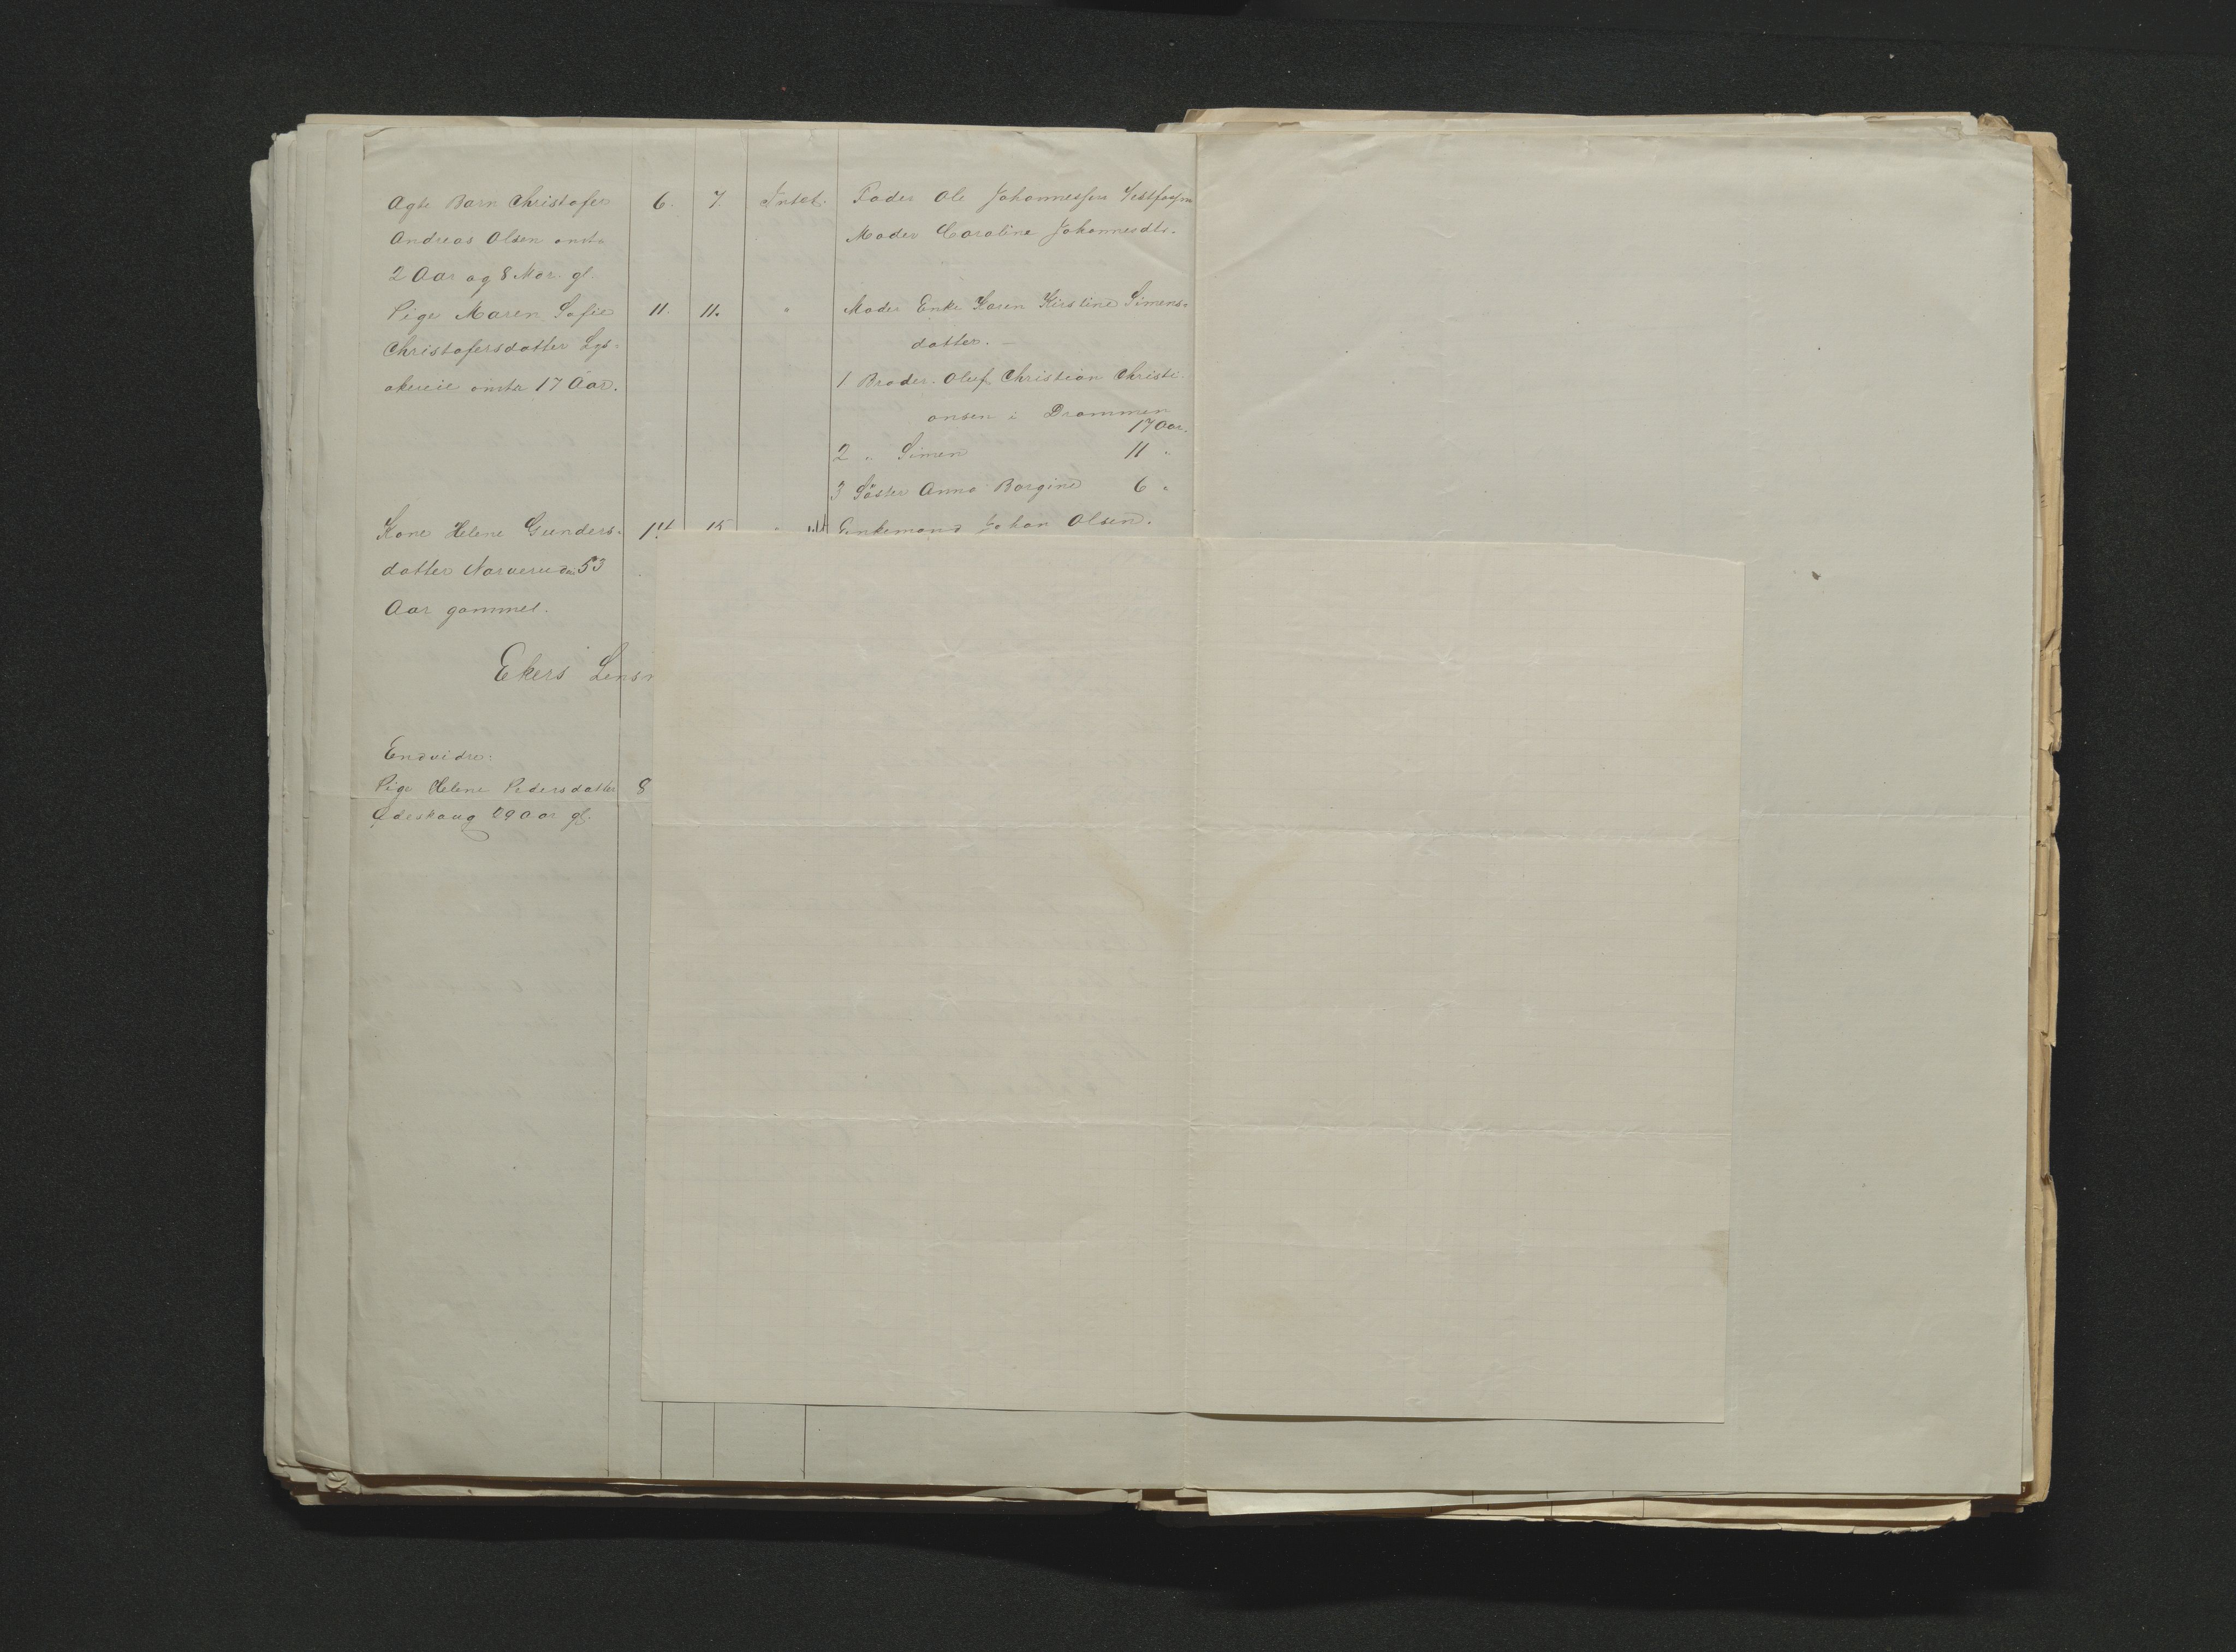 Ægte Barn Christofer 6. 7. Intet. Fader Ole Johannessen Vestfossen
Andreas Olsen omtr Moder Caroline Johannesdtr.
2 Aar og 8 Mdr. gl.
Pige Maren Sofie 11. 11. " Moder Enke Karen Kirstine Simens-
Christofersdatter datter. —
akereie omtr 17 Aar. 1 Broder. Oluf Christian Christi-
ansen i Drammen
17 Aar.
2 " Simen 11 "
3 Søster Anna Borgine 6 "
Kone Helene Gunders- 14 15 " Enkemand Johan Olsen.
datter Narverud 53
Aar gammel.
Ekers Lensm
Endvidre:
Pige Helene Pedersdatter 8
Ødeskaug 29 Aar gl.